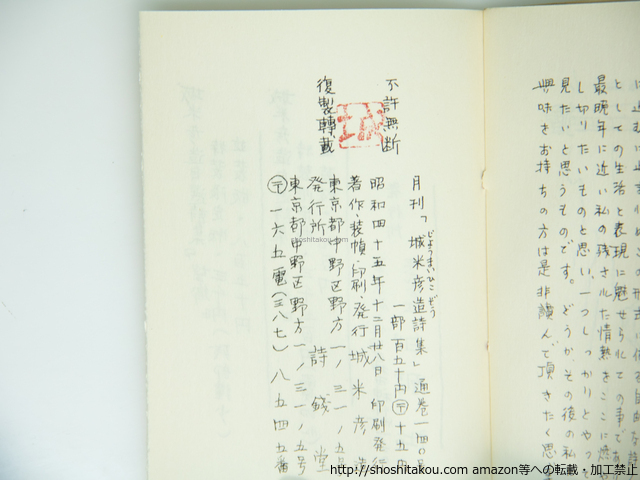 に
としての生活と表現に魅せられての事であ
最晩年に近い私の残された情熱をここに燃や
し切りたいものと思い、一つしっかりとやって
見たいと思うものです。どうか、その後の私
興味をお持ちの方は是非讀んで頂きたく思
不許無断
復製轉載
城
じょうまいひこぞう
月刊「城米彦造詩集」通巻一四〇号
一部百五十円〒十五
昭和四十五年十二月廿八日印刷発行
著作・装幀・印刷・発行 城米彦造
東京都中野区野方一ノ三一ノ五号
発行所 詩錢堂
東京都中野区野方一ノ三一ノ五号
〒一六五電(三八七)八五四五番
shoshitakou.com
http://shoshitakou.com amazon等への転載・加工禁止